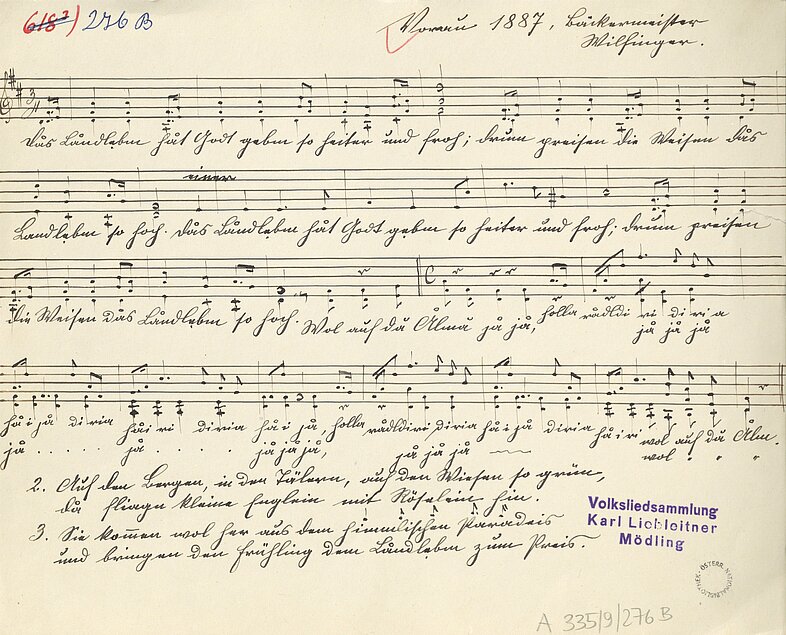 618²) 276 B
Vorau 1887, Bäckermeister
Wilfinger.
Das Låndlebm håt Godt gebm so heiter und froh; drum preisen die Weisen dås
einer
Landlebm so hoch. Dås Låndlebm håt Godt gebm so heiter und froh; drum preisen
die Weisen dås Låndlebm so hoch. Wol auf då Ålmå jå jå, holla rådldi ri di ri a
jå jå jå
håi jå diria håi ri diria håi jå, holla rådldiri diria håi jå diria håi ri wol auf då Ålm.
jå . . . . . jå . . . . . jå jå jå, jå jå jå wol " "
2. Auf den Bergen, in den Tälern, auf den Wiesen so grün,
då fliagn kleine Englein mit Röselein hin.
3. Sie kommen wol her aus dem himmlischen Parådeis
und bringen den Frühling dem Låndlebm zum Preis.
Volksliedsammlung
Karl Liebleitner
Mödling
ÖSTERR. NATIONALBIBLIOTHEK
A 335/9/276 B